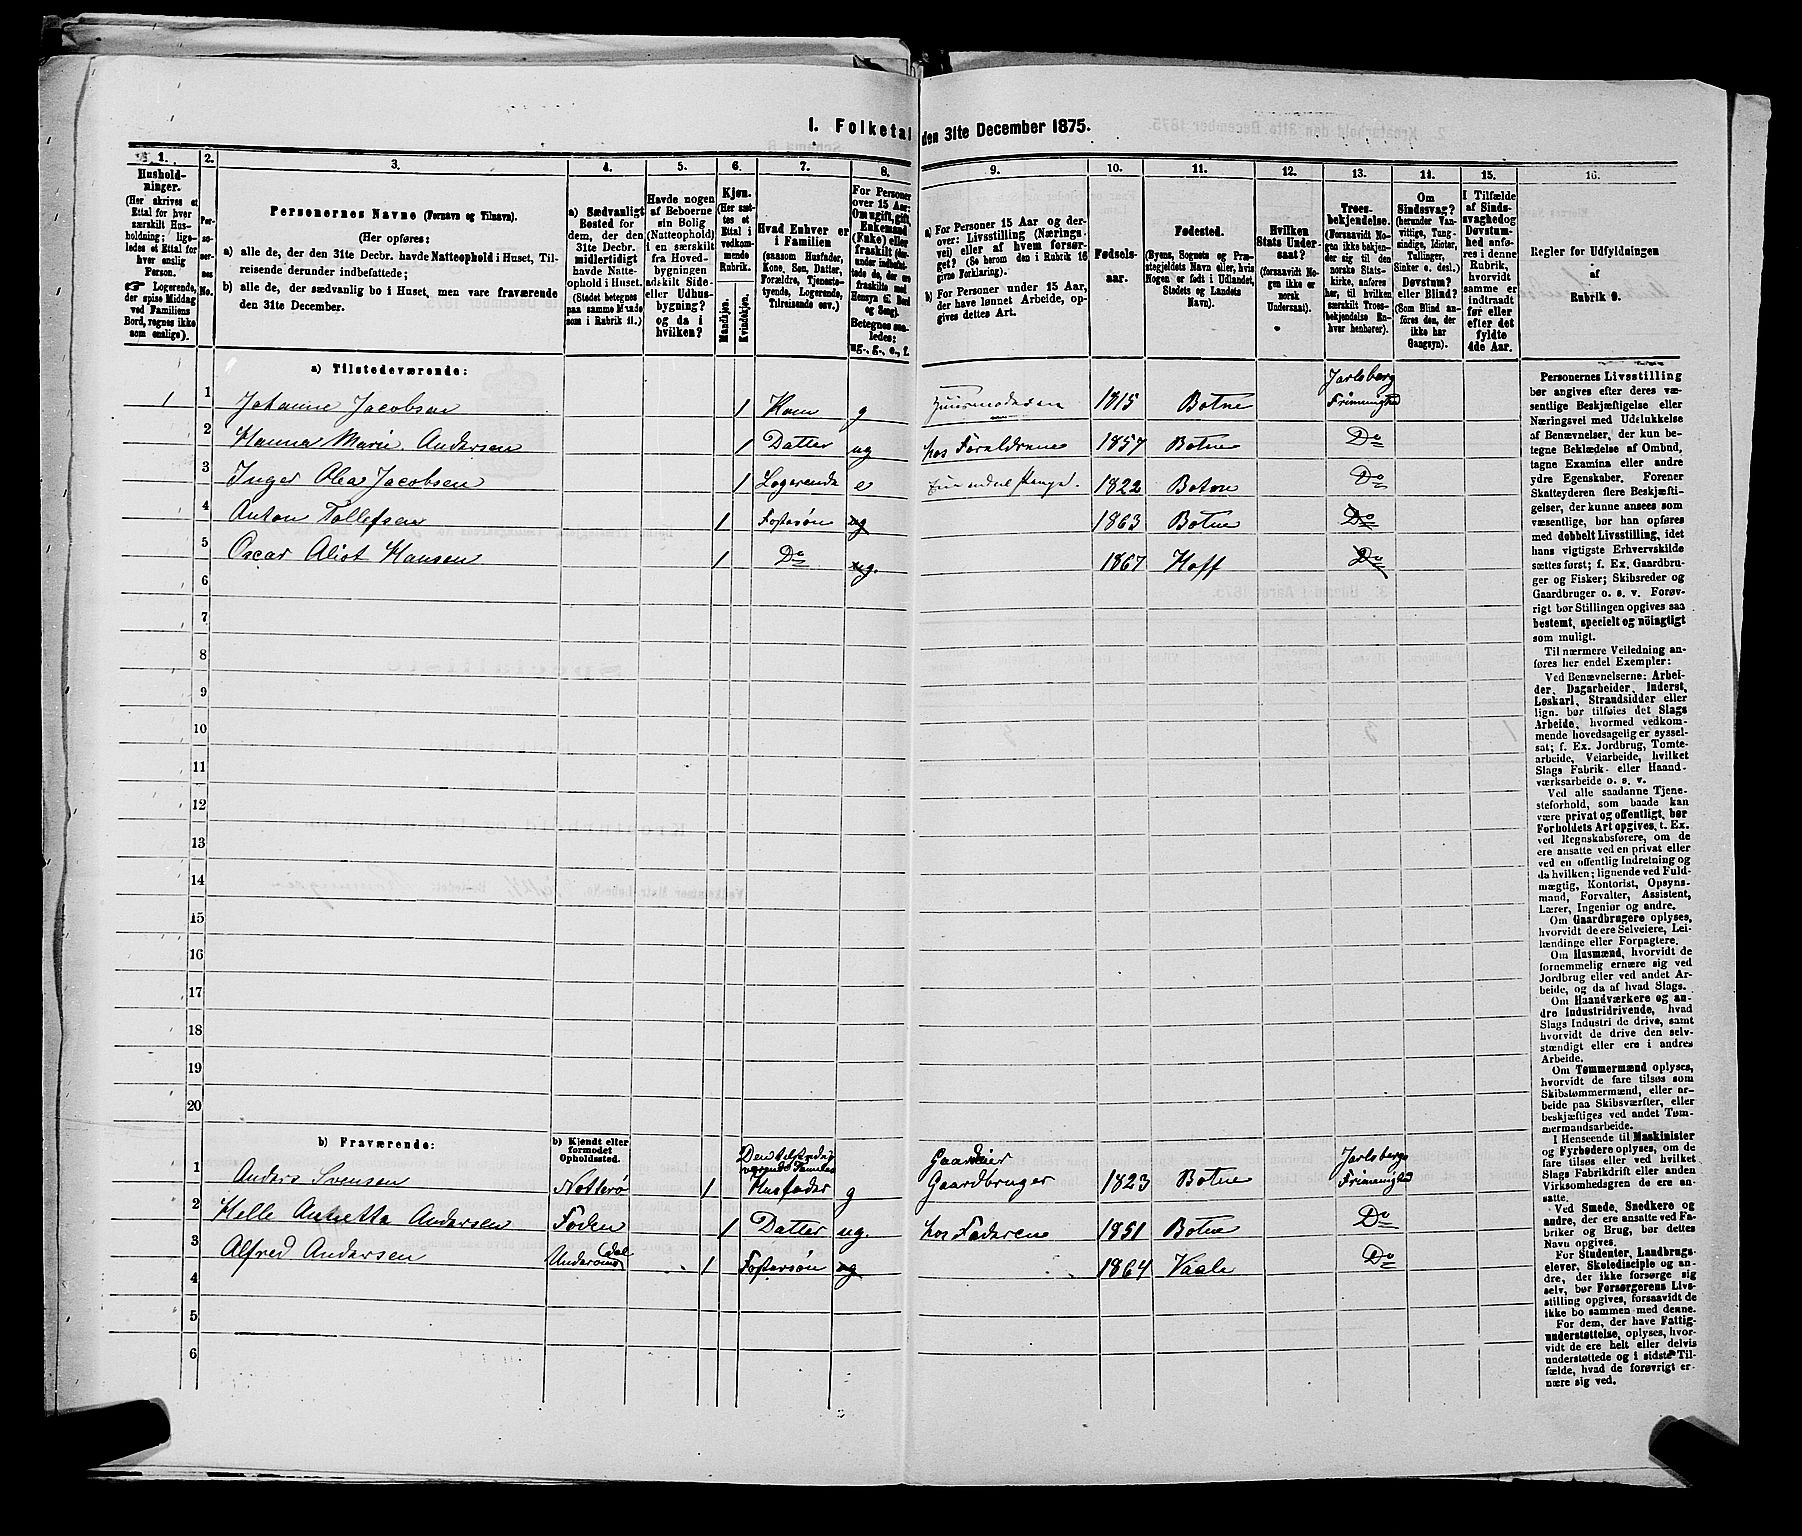 1. Folketal den 31te December 1875.
1. 2. 3. 4. 5. 6. 7. 8. 9. 10. 11. 12. 13. 14. 15. 16.
Hushold-
ninger.
(Her skrives et
Ettal for hver
særskilt Hus-
holdning; lige-
ledes et Ettal for
hver enslig
Person.
☞ Logerende,
der spise Middag
ved Familiens
Bord, regnes ikke
som enslige).
Per-
so-
ner-
nes
No.
Personernes Navne (Fornavn og Tilnavn).
(Her opføres:
a) alle de, der den 31te Decbr. havde Natteophold i Huset, Til-
reisende derunder indbefattede;
b) alle de, der sædvanlig bo i Huset, men vare fraværende
den 31te December.
a) Sædvanligt
Bosted for
dem, der den
31te Decbr.
midlertidigt
havde Natte-
ophold i Huset.
(Stedet betegnes
paa samme Maade
som i Rubrik 11.)
Havde nogen
af Beboerne
sin Bolig
(Natteophold)
i en særskilt
fra Hoved-
bygningen
adskilt Side-
eller Udhus-
bygning?
og da i
hvilken?
Kjøn.
(Her sæt-
tes et
Ettal i
vedkom-
mende
Rubrik.
Mandkjøn.
Kvindekjøn.
Hvad Enhver er
i Familien
(saasom Husfader,
Kone, Søn, Datter,
Forældre, Tjeneste-
tyende, Logerende,
Tilreisende osv.)
For Personer
over 15 Aar:
Om ugift, gift,
Enkemand
(Enke) eller
fraskilt
Betegnes saa-
ledes:
ug., g., e., f.
a) For Personer 15 Aar og der-
over: Livsstilling (Nærings-
vei) eller af hvem forsør-
get? (Se herom den i Rubrik 16
givne Forklaring).
b) For Personer under 15 Aar,
der have lønnet Arbeide, op-
gives dettes Art.
Fødsels-
aar.
Fødested.
(Byens, Sognets og Præ-
stegjeldets Navn eller, hvis
Nogen er født i Udlandet,
Stedets og Landets
Navn).
Hvilken
Stats Under-
saat?
(forsaavidt No-
gen ikke er
norsk
Undersaat).
Troes-
bekjendelse.
(Forsaavidt No-
gen ikke bekjen-
der sig til den
norske Stats-
kirke, anføres
her, til hvilken
særskilt Troes-
bekjendelse En-
hver henhører).
Om
Sindssvag?
(herunder Van-
vittige, Tung-
sindige, Idioter,
Tullinger,
Sinker o. desl.)
Døvstum?
eller Blind?
(Som Blind an-
føres den, der
ikke har
Gangsyn).
I Tilfælde
af Sinds-
svaghed og
Døvstum-
hed anfø-
res i denne
Rubrik,
hvorvidt
samme er
indtraadt
før eller
efter det
fyldte
4de Aar.
Regler for Udfyldningen
af
Rubrik 9.
a) Tilstedeværende:
1 1 Johanne Jacobsen 1 Kone g Huusmoderen 1815 Botne Jarlsberg Frimenighed
2 Hanna Marie Andersen 1 Datter ug hos Foraldrene 1857 Botne Do
3 Inger Olea Jacobsen 1 Logerende e 1822 Botne Do
4 Anton Tollefsen 1 Fostersøn ug 1863 Botne Do
5 Oscar Alist Hansen 1 Do ug. 1867 Hoff Do
6
7
8
9
10
11
12
13
14
15
16
17
18
19
20
b) Fraværende:
b) Kjendt eller
formodet
Opholdssted.
1 Anders Svensen Nøtterø 1 Den tilstedeværende Families Husfader g Gaardeier Gaardbruger 1823 Botne Jarlsberg Frimenighed
2 Helle Antretta Andersen Foden 1 Datter ug. hos Faderene 1851 Botne Do
3 Alfred Andersen 1 Fostersøn ug 1864 Vaale Do
4
5
6
Personernes Livsstilling
bør angives efter deres væ-
sentlige Beskjæftigelse eller
Næringsvei med Udelukkelse
af Benævnelser, der kun be-
tegne Beklædelse af Ombud,
tagne Examina eller andre
ydre Egenskaber. Forener
Skatteyderen flere Beskjæfti-
gelser, der kunne ansees som
væsentlige, bør han opføres
med dobbelt Livsstilling, idet
hans vigtigste Erhvervskilde
sættes først; f. Ex. Gaardbru-
ger og Fisker; Skibsreder og
Gaardbruger o. s. v. Forøv-
rigt bør Stillingen opgives saa
bestemt, specielt og nöiagtigt
som muligt.
Til nærmere Veiledning an-
føres her endel Exempler:
Ved Benævnelserne: Arbei-
der, Dagarbeider, Inderst,
Løskarl, Strandsidder eller
lign. bør tilføies det Slags
Arbeide, hvormed vedkom-
mende hovedsagelig er syssel-
sat; f. Ex. Jordbrug, Tomte-
arbeide, Veiarbeide, hvilket
Slags Fabrik- eller Haand-
værksarbeide o. s. v.
Ved alle saadanne Tjene-
steforhold, som baade kan
være privat og offentligt, bør
Forholdets Art opgives, t. Ex.
ved Regnskabsførere, om de
ere ansatte ved en privat eller
ved en offentlig Indretning og
da hvilken; lignende ved Fuld-
mægtig, Kontorist, Opsyns-
mand, Forvalter, Assistent,
Lærer, Ingeniør og andre.
Om Gaardbrugere oplyses,
hvorvidt de ere Selveiere, Lei-
lændinge eller Forpagtere.
Om Husmænd, hvorvidt de
fornemmelig ernære sig ved
Jordbrug eller ved andet Ar-
beide, og da af hvad Slags.
Om Haandværkere og an-
dre Industridrivende, hvad
Slags Industri de drive, samt
hvorvidt de drive den selv-
stændigt eller ere i andres
Arbeide.
Om Tømmermænd oplyses,
hvorvidt de fare tilsøs som
Skibstømmermænd, eller ar-
beide paa Skibsværfter, eller
beskjæftiges ved andet Tøm-
mermandsarbeide.
I Henseende til Maskinister
og Fyrbødere oplyses, om de
fare tilsøs eller ved hvilket
Slags Fabrikdrift eller anden
Virksomhedsgren de ere an-
satte.
Ved Smede, Snedkere og
andre, der ere ansatte ved Fa-
briker og Brug, bør dettes
Navn opgives.
For Studenter, Landbrugs-
elever, Skoledisciple og an-
dre, der ikke forsørge sig
selv, bør Forsørgerens Livs-
stilling opgives, forsaavidt de
ikke bo sammen med denne.
For dem, der have Fattig-
understøttelse, oplyses, hvor-
vidt de ere helt eller delvis
understøttede og i sidste Til-
fælde, hvad de forøvrigt er-
nære sig ved.